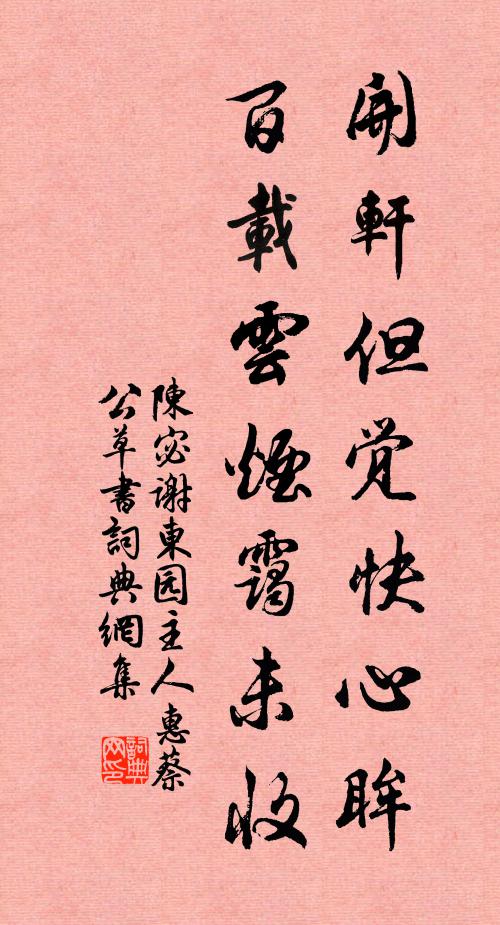 開軒但覺快心眸
百載雲煙靄未收
陳宓謝東园主人惠蔡
公草書詞典網集
詞典网印